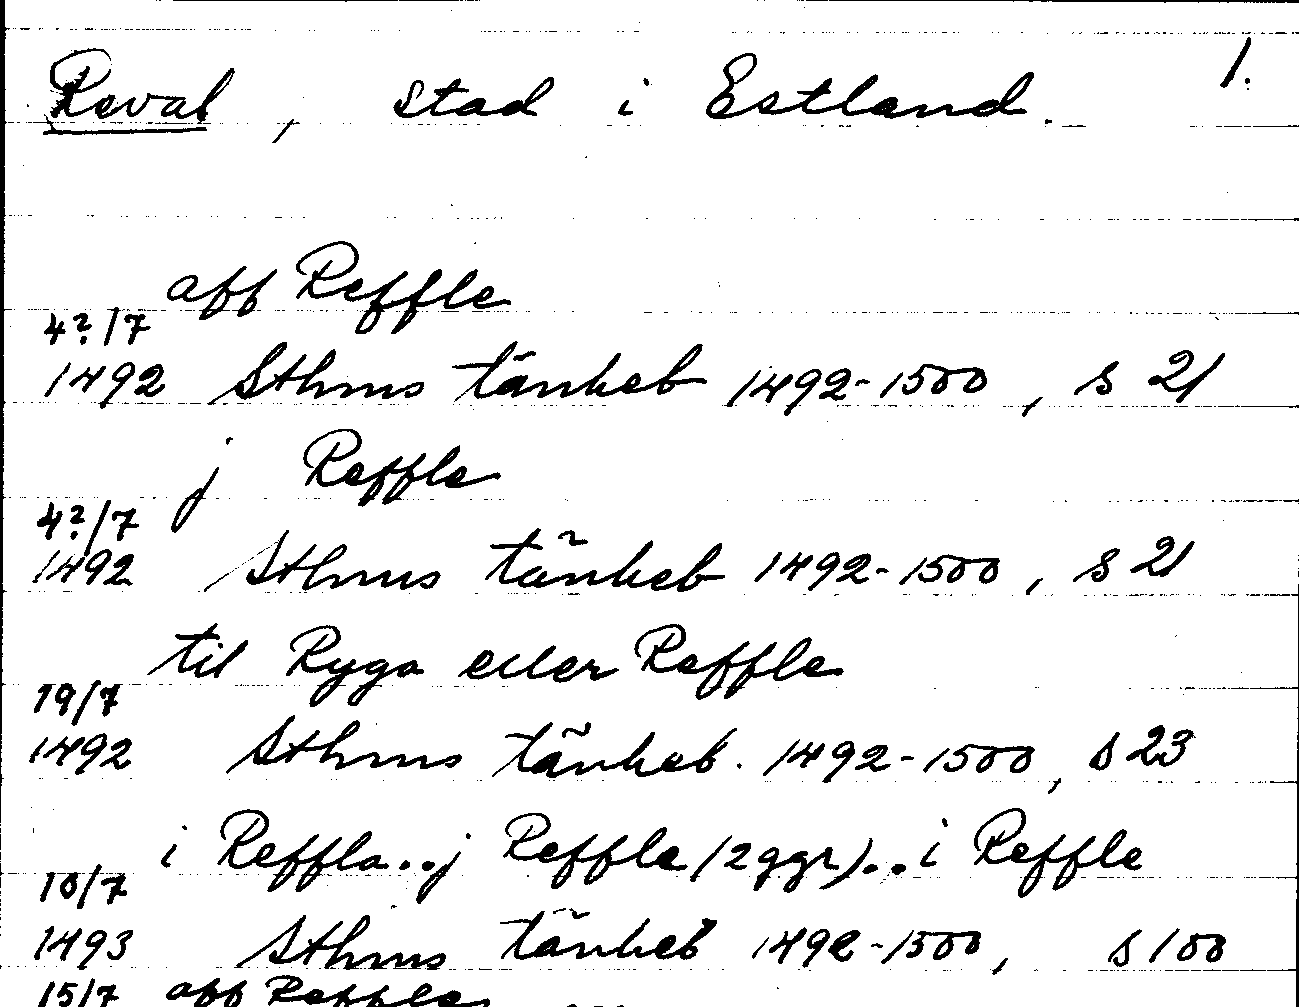 1.
Reval, stad i Estland.
aff Reffle
4?/7
1492 Sthms tänkeb 1492-1500, s 21
j Reffle
4?/7
1492 Sthms tänkeb 1492-1500, s 21
til Ryga eller Reffle
19/7
1492 Sthms tänkeb. 1492-1500, s 23
i Reffla..j Reffle (2ggr)..i Reffle
10/7
1493 Sthms tänkeb 1492-1500, s 100
15/7 aff Reffle